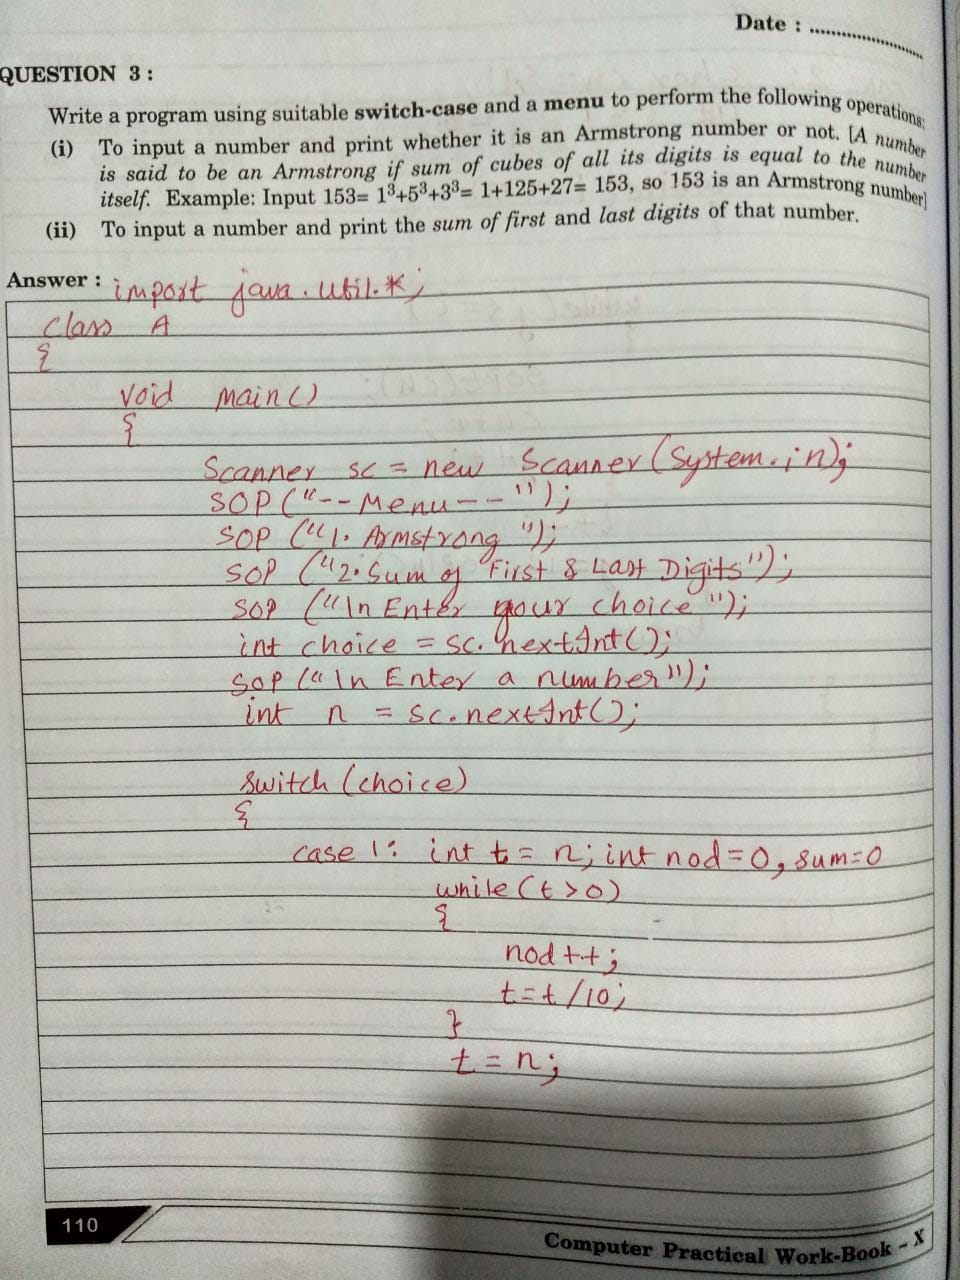 Date : ........................
QUESTION 3 :
Write a program using suitable switch-case and a menu to perform the following operations:
(i) To input a number and print whether it is an Armstrong number or not. [A number
is said to be an Armstrong if sum of cubes of all its digits is equal to the number
itself. Example: Input 153= 1³+5³+3³= 1+125+27= 153, so 153 is an Armstrong number]
(ii) To input a number and print the sum of first and last digits of that number.
Answer : import java.util.*;
class A
{
void main()
{
Scanner sc = new Scanner(System.in);
SOP ("--Menu--");
SOP ("1. Armstrong");
SOP ("2. Sum of First & Last Digits");
SOP ("\n Enter your choice");
int choice = sc.nextInt();
SOP ("\n Enter a number");
int n = sc.nextInt();
switch (choice)
{
case 1: int t = n; int nod=0, sum=0
while (t>0)
{
nod++;
t=t/10;
}
t = n;
110
Computer Practical Work-Book - X